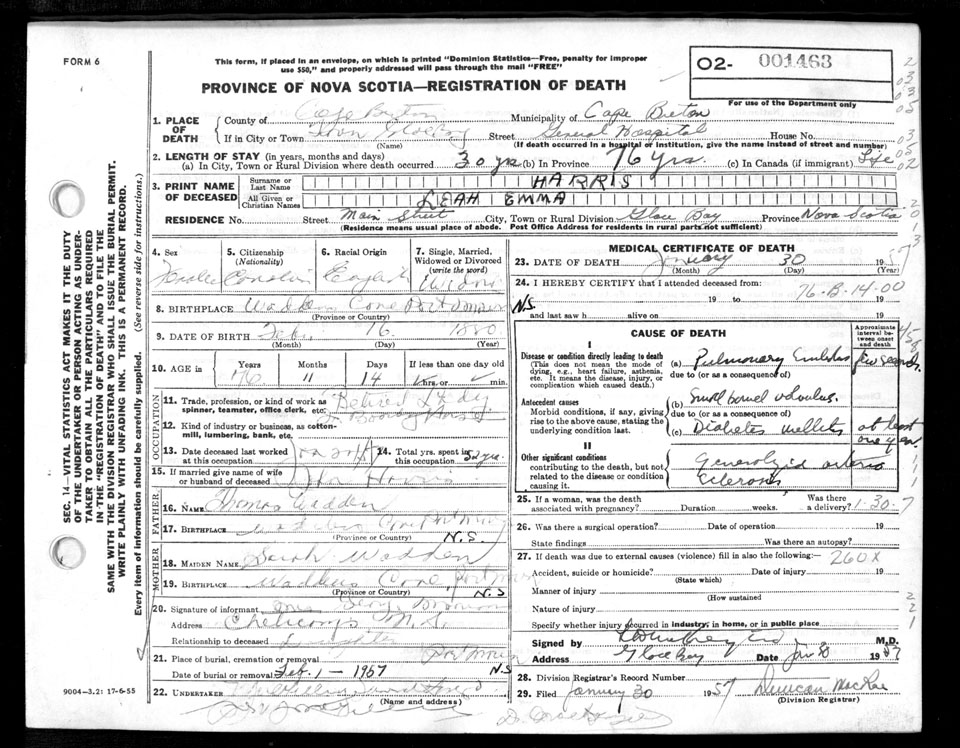 FORM 6
This form, if placed in an envelope, on which is printed "Dominion Statistics—Free, penalty for improper
use $50," and properly addressed will pass through the mail "FREE"
PROVINCE OF NOVA SCOTIA—REGISTRATION OF DEATH
O2- 001463
For use of the Department only
1. PLACE OF DEATH
County of Cape Breton Municipality of Cape Breton
If in City or Town Town Glace Bay Street General Hospital House No.
(Name) (If death occurred in a hospital or institution, give the name instead of street and number)
2. LENGTH OF STAY (in years, months and days)
(a) In City, Town or Rural Division where death occurred 30 yrs. (b) In Province 76 yrs. (c) In Canada (if immigrant) Life
3. PRINT NAME OF DECEASED
Surname or Last Name HARRIS
All Given or Christian Names LEAH EMMA
RESIDENCE No. Street Main Street City, Town or Rural Division Glace Bay Province Nova Scotia
(Residence means usual place of abode. Post Office Address for residents in rural parts not sufficient)
4. Sex
5. Citizenship (Nationality)
6. Racial Origin
7. Single, Married, Widowed or Divorced (write the word)
8. BIRTHPLACE Cove Port Morien
(Province or Country)
9. DATE OF BIRTH Feb. 16 1880
(Month) (Day) (Year)
10. AGE in Years Months Days If less than one day old
76 11 14 hrs. or min.
OCCUPATION
11. Trade, profession, or kind of work as spinner, teamster, office clerk, etc.
12. Kind of industry or business, as cotton-mill, lumbering, bank, etc.
13. Date deceased last worked at this occupation
14. Total yrs. spent in this occupation
15. If married give name of wife or husband of deceased Harris
FATHER
16. NAME Thomas Wadden
17. BIRTHPLACE N.S.
(Province or Country)
MOTHER
18. MAIDEN NAME Sarah Wadden
19. BIRTHPLACE Waddens Cove, Port Morien N.S
(Province or Country)
20. Signature of informant
Address N.S.
Relationship to deceased Daughter
21. Place of burial, cremation or removal Port Morien
Date of burial or removal Feb. 1 - 1957 N.S
22. UNDERTAKER
(Name and address)
9004—3.2: 17-6-55
MEDICAL CERTIFICATE OF DEATH
23. DATE OF DEATH January 30 1957
(Month) (Day) (Year)
24. I HEREBY CERTIFY that I attended deceased from:
76-B-14-00
19 to 19
NS
and last saw h alive on 19
CAUSE OF DEATH
Approximate interval between onset and death
I
Disease or condition directly leading to death (a) Pulmonary Embolus few seconds
(This does not mean the mode of dying, e.g., heart failure, asthenia, etc. It means the disease, injury, or complication which caused death.)
due to (or as a consequence of)
Antecedent causes (b) Small bowel volvulus
Morbid conditions, if any, giving rise to the above cause, stating the underlying condition last.
due to (or as a consequence of)
(c) Diabetes mellitus at least one year
II
Other significant conditions
contributing to the death, but not related to the disease or condition causing it.
Generalyzed arterio sclerosis
25. If a woman, was the death associated with pregnancy? Duration weeks. Was there a delivery? 1-30-7
26. Was there a surgical operation? Date of operation 19
State findings Was there an autopsy?
27. If death was due to external causes (violence) fill in also the following:—
260X
Accident, suicide or homicide? Date of injury 19
(State which)
Manner of injury
(How sustained
Nature of injury
Specify whether injury occurred in industry, in home, or in public place
Signed by M.D.
Address Glace Bay Date Jan 30 1957
28. Division Registrar's Record Number
29. Filed January 30 1957 Duncan MacRae
(Division Registrar)
SEC. 14—VITAL STATISTICS ACT MAKES IT THE DUTY
OF THE UNDERTAKER OR PERSON ACTING AS UNDER-
TAKER TO OBTAIN ALL THE PARTICULARS REQUIRED
IN THE "REGISTRATION OF DEATH" AND TO FILE THE
SAME WITH THE DIVISION REGISTRAR WHO SHALL ISSUE THE BURIAL PERMIT.
WRITE PLAINLY WITH UNFADING INK. THIS IS A PERMANENT RECORD.
Every item of information should be carefully supplied. (See reverse side for instructions.)